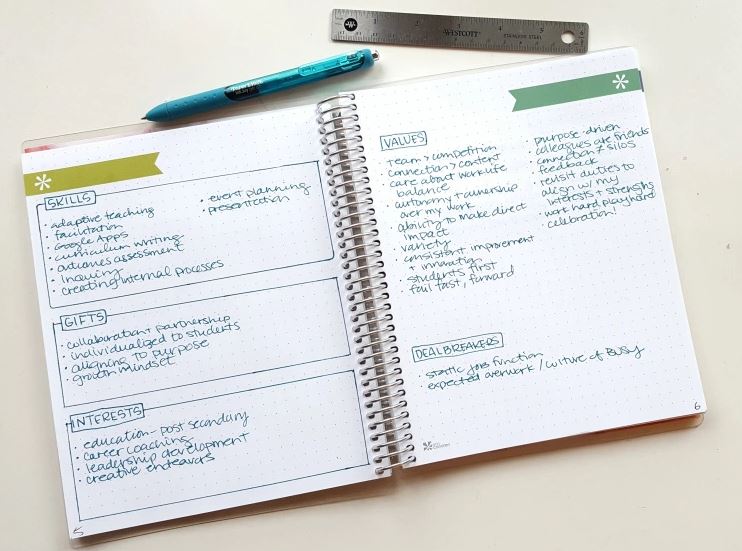 WESTCOTT
STAINLESS STEEL
SKILLS
• adaptive teaching
• facilitation
• Google Apps
• curriculum writing
• outcomes assessment
• inquiry
• creating internal processes
• event planning
• presentation
GIFTS
• collaboration + partnership
• individualized to students
• aligning to purpose
• growth mindset
INTERESTS
• education - post secondary
• career coaching
• leadership development
• creative endeavors
5
VALUES
• team > competition
• connection > content
• care about work life
balance
• autonomy + ownership
over my work
• ability to make direct
impact
• variety
• consistent improvement
+ innovation
• students first
• fail fast, forward
• purpose-driven
• colleagues are friends
• connection ≠ silos
• feedback
• revisit duties to
align w/ my
interests + strengths
• work hard play hard
• celebration!
DEALBREAKERS
• static job function
• expected overwork / culture of BUSY
6